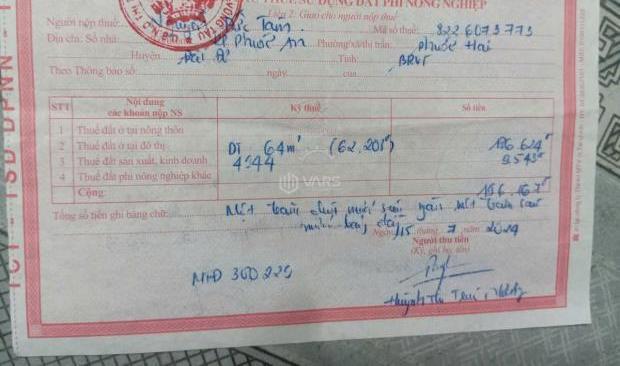 THUẾ SỬ DỤNG ĐẤT PHI NÔNG NGHIỆP
Liên 2: Giao cho người nộp thuế
Người nộp thuế: Đức Tâm Mã số thuế: 8226073773
Địa chỉ: Số nhà: Phước An Phường/xã/thị trấn: Phước Hải
Huyện: Đất Đỏ Tỉnh: BRVT
Theo Thông báo số: ngày của
STT Nội dung các khoản nộp NS Kỳ thuế Số tiền
1 Thuế đất ở tại nông thôn
2 Thuế đất ở tại đô thị DT 64m² 186.624đ
3 Thuế đất sản xuất, kinh doanh 4944 9.543đ
4 Thuế đất phi nông nghiệp khác
Cộng: 196.167đ
VARS
Tổng số tiền ghi bằng chữ: Một trăm chín mươi sáu ngàn một trăm sáu mươi bảy
Ngày 15 tháng 7 năm 2024
Người thu tiền
(Ký, ghi họ tên)
Huỳnh Thị
TCT - TSD ĐPNN